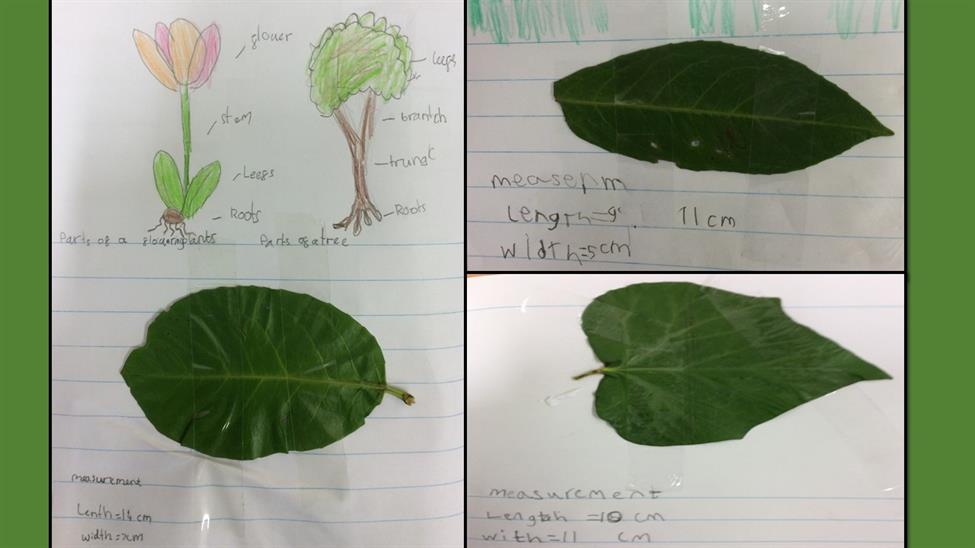 glower
stem
Leegs
Roots
Parts of a glowrmplants
Leegs
branch
trunk
Roots
Parts of a tree
measurement
Lenth =14 cm
width = cm
measepm
Length=9 11 cm
Width=5cm
measurement
Length =10 cm
with=11 cm